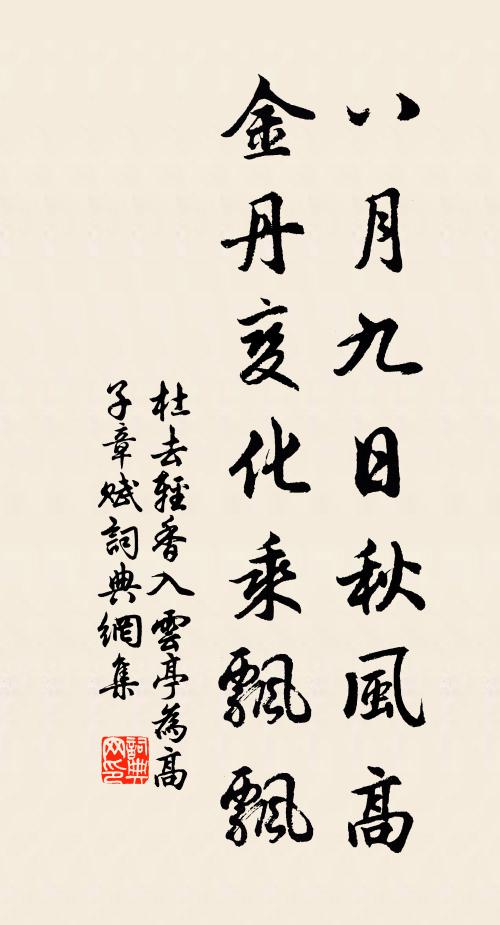 八月九日秋風高
金丹变化乘飄飄
杜去輕香入雲亭為高
子章赋詞典網集
詞典网印